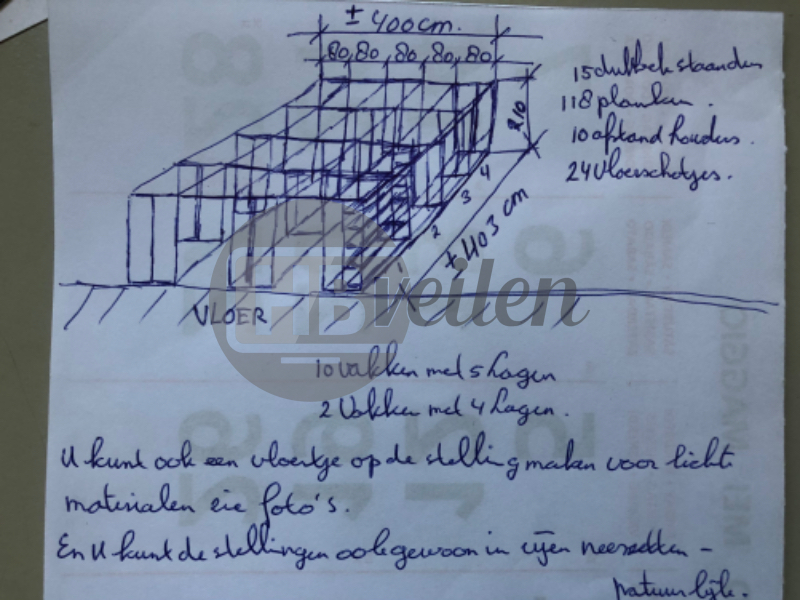 ± 400 cm.
80 80 80 80 80
15 dubbele staanders
118 planken.
10 afstand houders.
24 Vloerschotjes.
210
4
3
2
1
± 403 cm
VLOER
veilen
10 vakken met 5 lagen
2 Vakken met 4 lagen.
U kunt ook een vloertje op de stelling maken voor lichte
materialen zie foto's.
En U kunt de stellingen ook gewoon in rijen neerzetten -
natuurlijk.